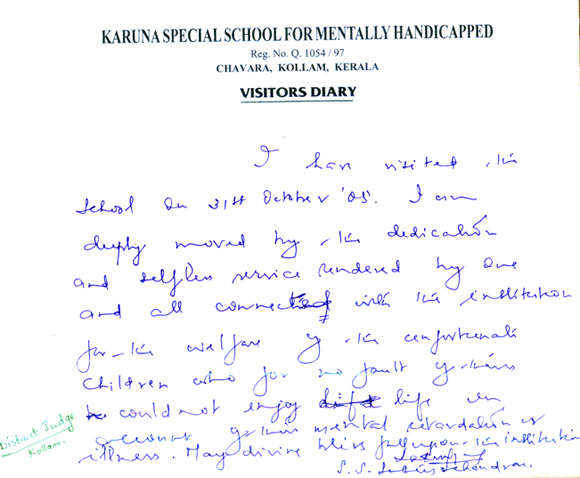 KARUNA SPECIAL SCHOOL FOR MENTALLY HANDICAPPED
Reg. No. Q. 1054 / 97
CHAVARA, KOLLAM, KERALA
VISITORS DIARY
I have visited this
school on 31st October '05. I am
deeply moved by the dedication
and selfless service rendered by one
and all connected with the institution
for the welfare of the unfortunate
children who for no fault of theirs
could not enjoy life on
account of their mental retardation or
illness. May divine bliss fall upon the institution
S. S.
District Judge
Kollam.